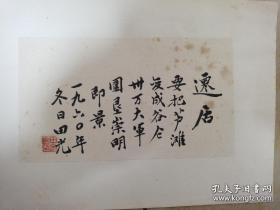 速店
要把芦滩
变成谷仓
卅万大军
围垦崇明
即景
一九六〇年
冬日田光
孔夫子旧书网